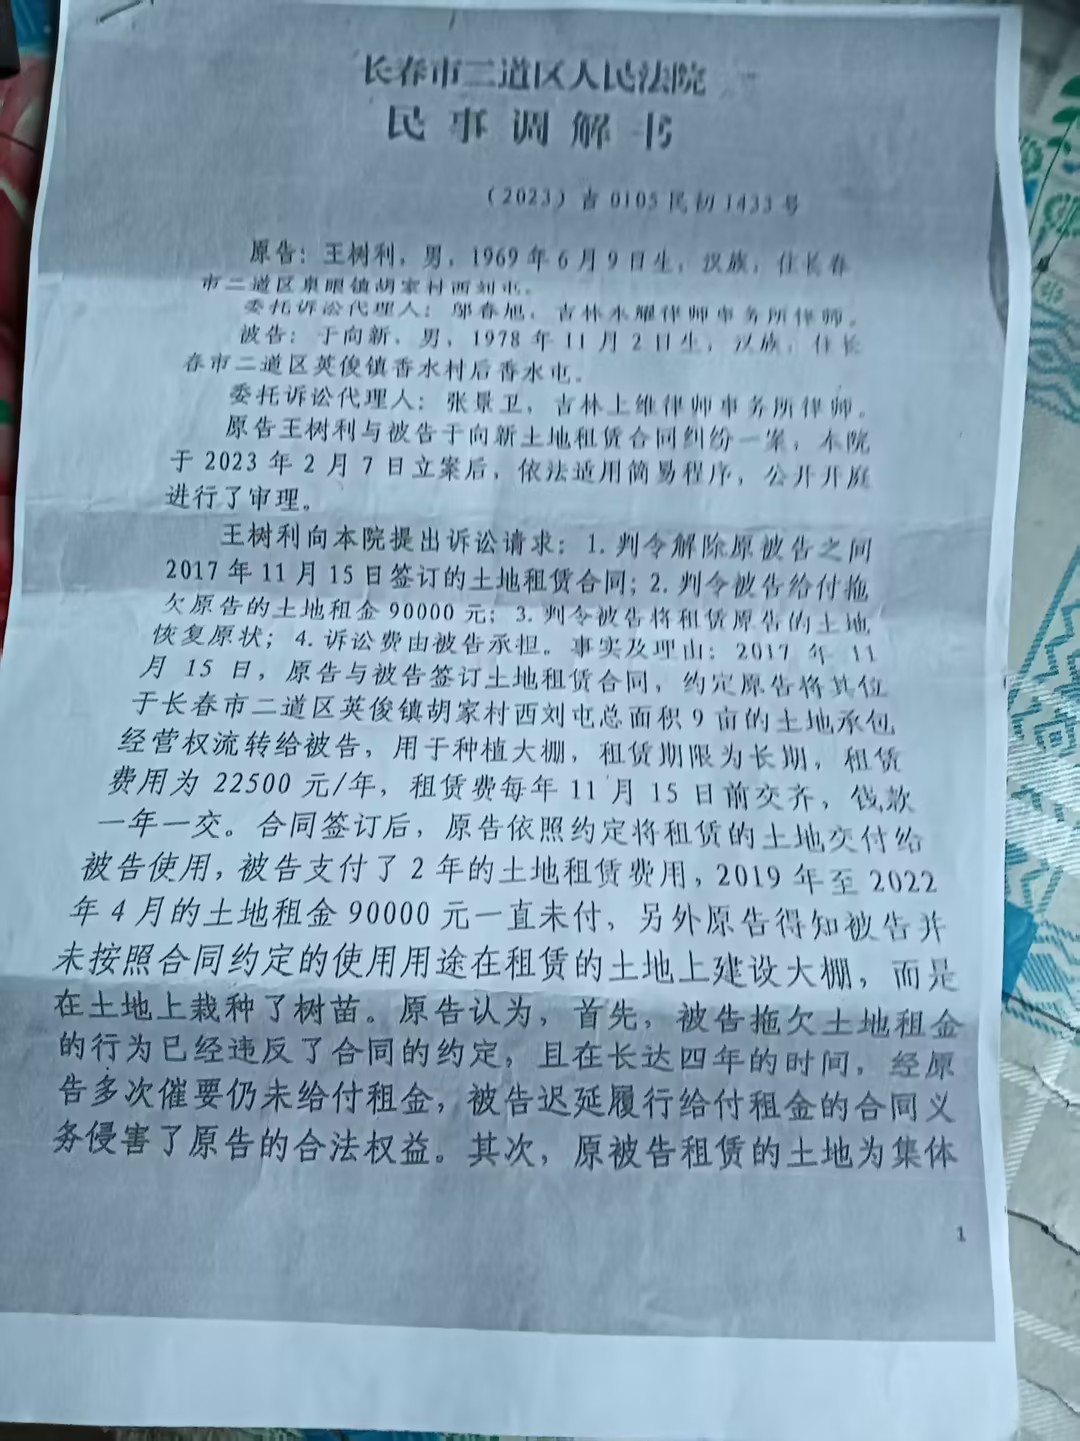 长春市二道区人民法院
民事调解书
（2023）吉 0105 民初 1433 号
原告：王树利，男，1969 年 6 月 9 日生，汉族，住长春
市二道区泉眼镇胡家村西刘屯。
委托诉讼代理人：邬春旭，吉林永耀律师事务所律师。
被告：于向新，男，1978 年 11 月 2 日生，汉族，住长
春市二道区英俊镇香水村后香水屯。
委托诉讼代理人：张景卫，吉林上维律师事务所律师。
原告王树利与被告于向新土地租赁合同纠纷一案，本院
于 2023 年 2 月 7 日立案后，依法适用简易程序，公开开庭
进行了审理。
王树利向本院提出诉讼请求：1. 判令解除原被告之间
2017 年 11 月 15 日签订的土地租赁合同；2. 判令被告给付拖
欠原告的土地租金 90000 元；3. 判令被告将租赁原告的土地
恢复原状；4. 诉讼费由被告承担。事实及理由：2017 年 11
月 15 日，原告与被告签订土地租赁合同，约定原告将其位
于长春市二道区英俊镇胡家村西刘屯总面积 9 亩的土地承包
经营权流转给被告，用于种植大棚，租赁期限为长期，租赁
费用为 22500 元/年，租赁费每年 11 月 15 日前交齐，钱款
一年一交。合同签订后，原告依照约定将租赁的土地交付给
被告使用，被告支付了 2 年的土地租赁费用，2019 年至 2022
年 4 月的土地租金 90000 元一直未付，另外原告得知被告并
未按照合同约定的使用用途在租赁的土地上建设大棚，而是
在土地上栽种了树苗。原告认为，首先，被告拖欠土地租金
的行为已经违反了合同的约定，且在长达四年的时间，经原
告多次催要仍未给付租金，被告迟延履行给付租金的合同义
务侵害了原告的合法权益。其次，原被告租赁的土地为集体
1